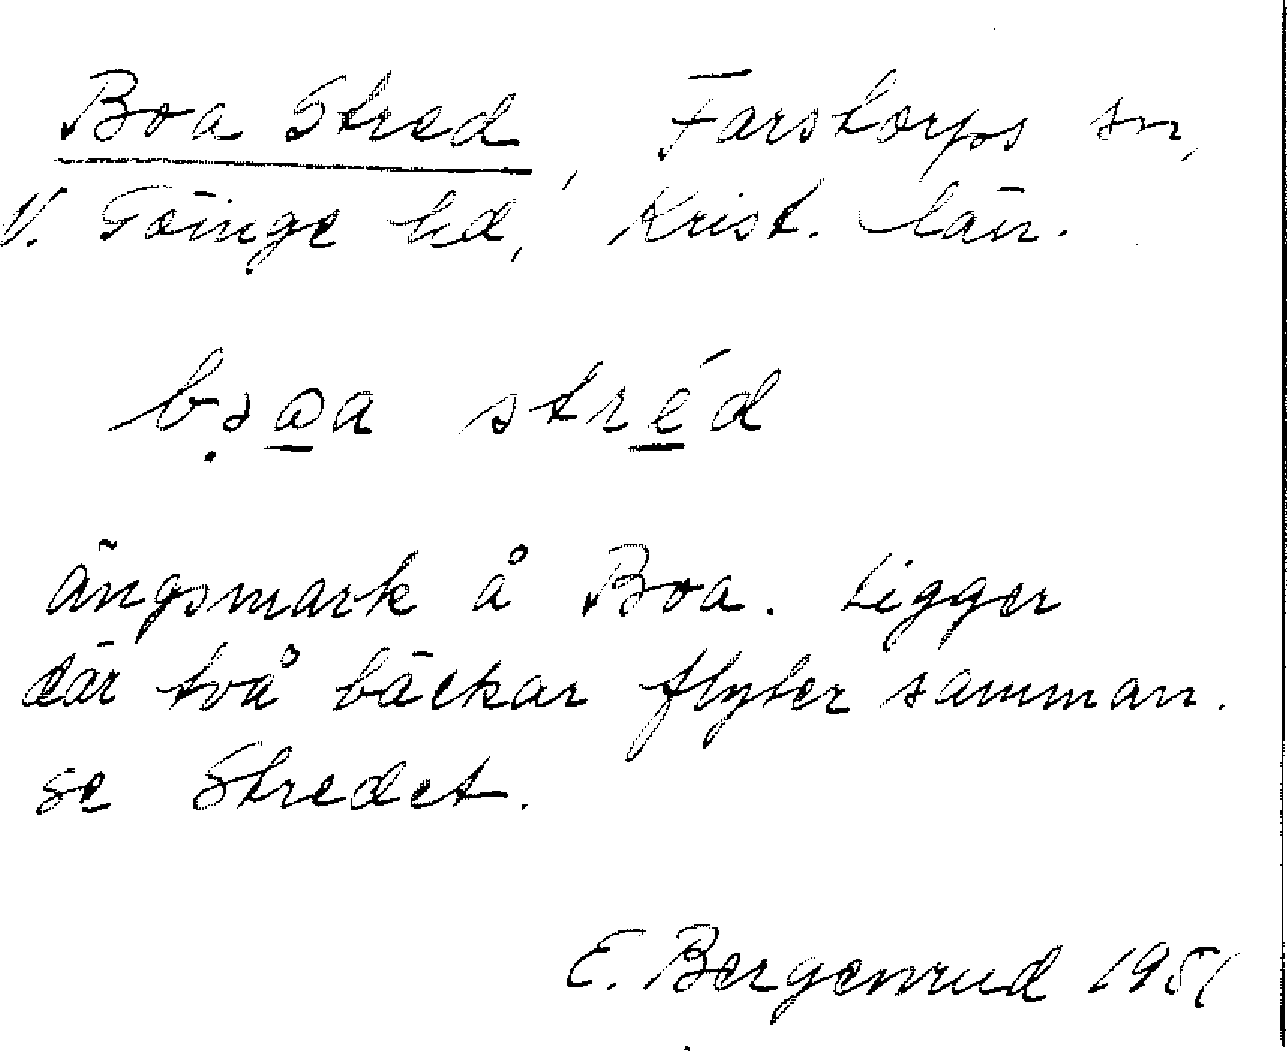 Boa Stred, Farstorps sn,
V. Göinge hd, Krist. län.
bə̣o̲a stré̲d
Ängsmark å Boa. Ligger
där två bäckar flyter samman.
se Stredet.
E. Bergenrud 1951